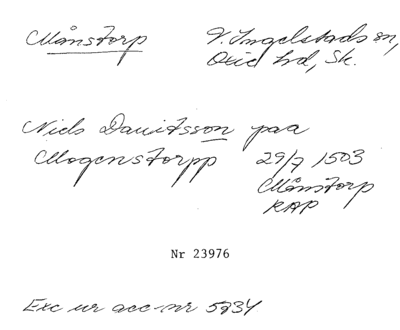 Månstorp V. Ingelstads sn,
Oxie hd, Sk.
Niels Dauitsson paa
Mogenstorpp 29/7 1503
Månstorp
RAP
Nr 23976
Exc ur acc-nr 5234